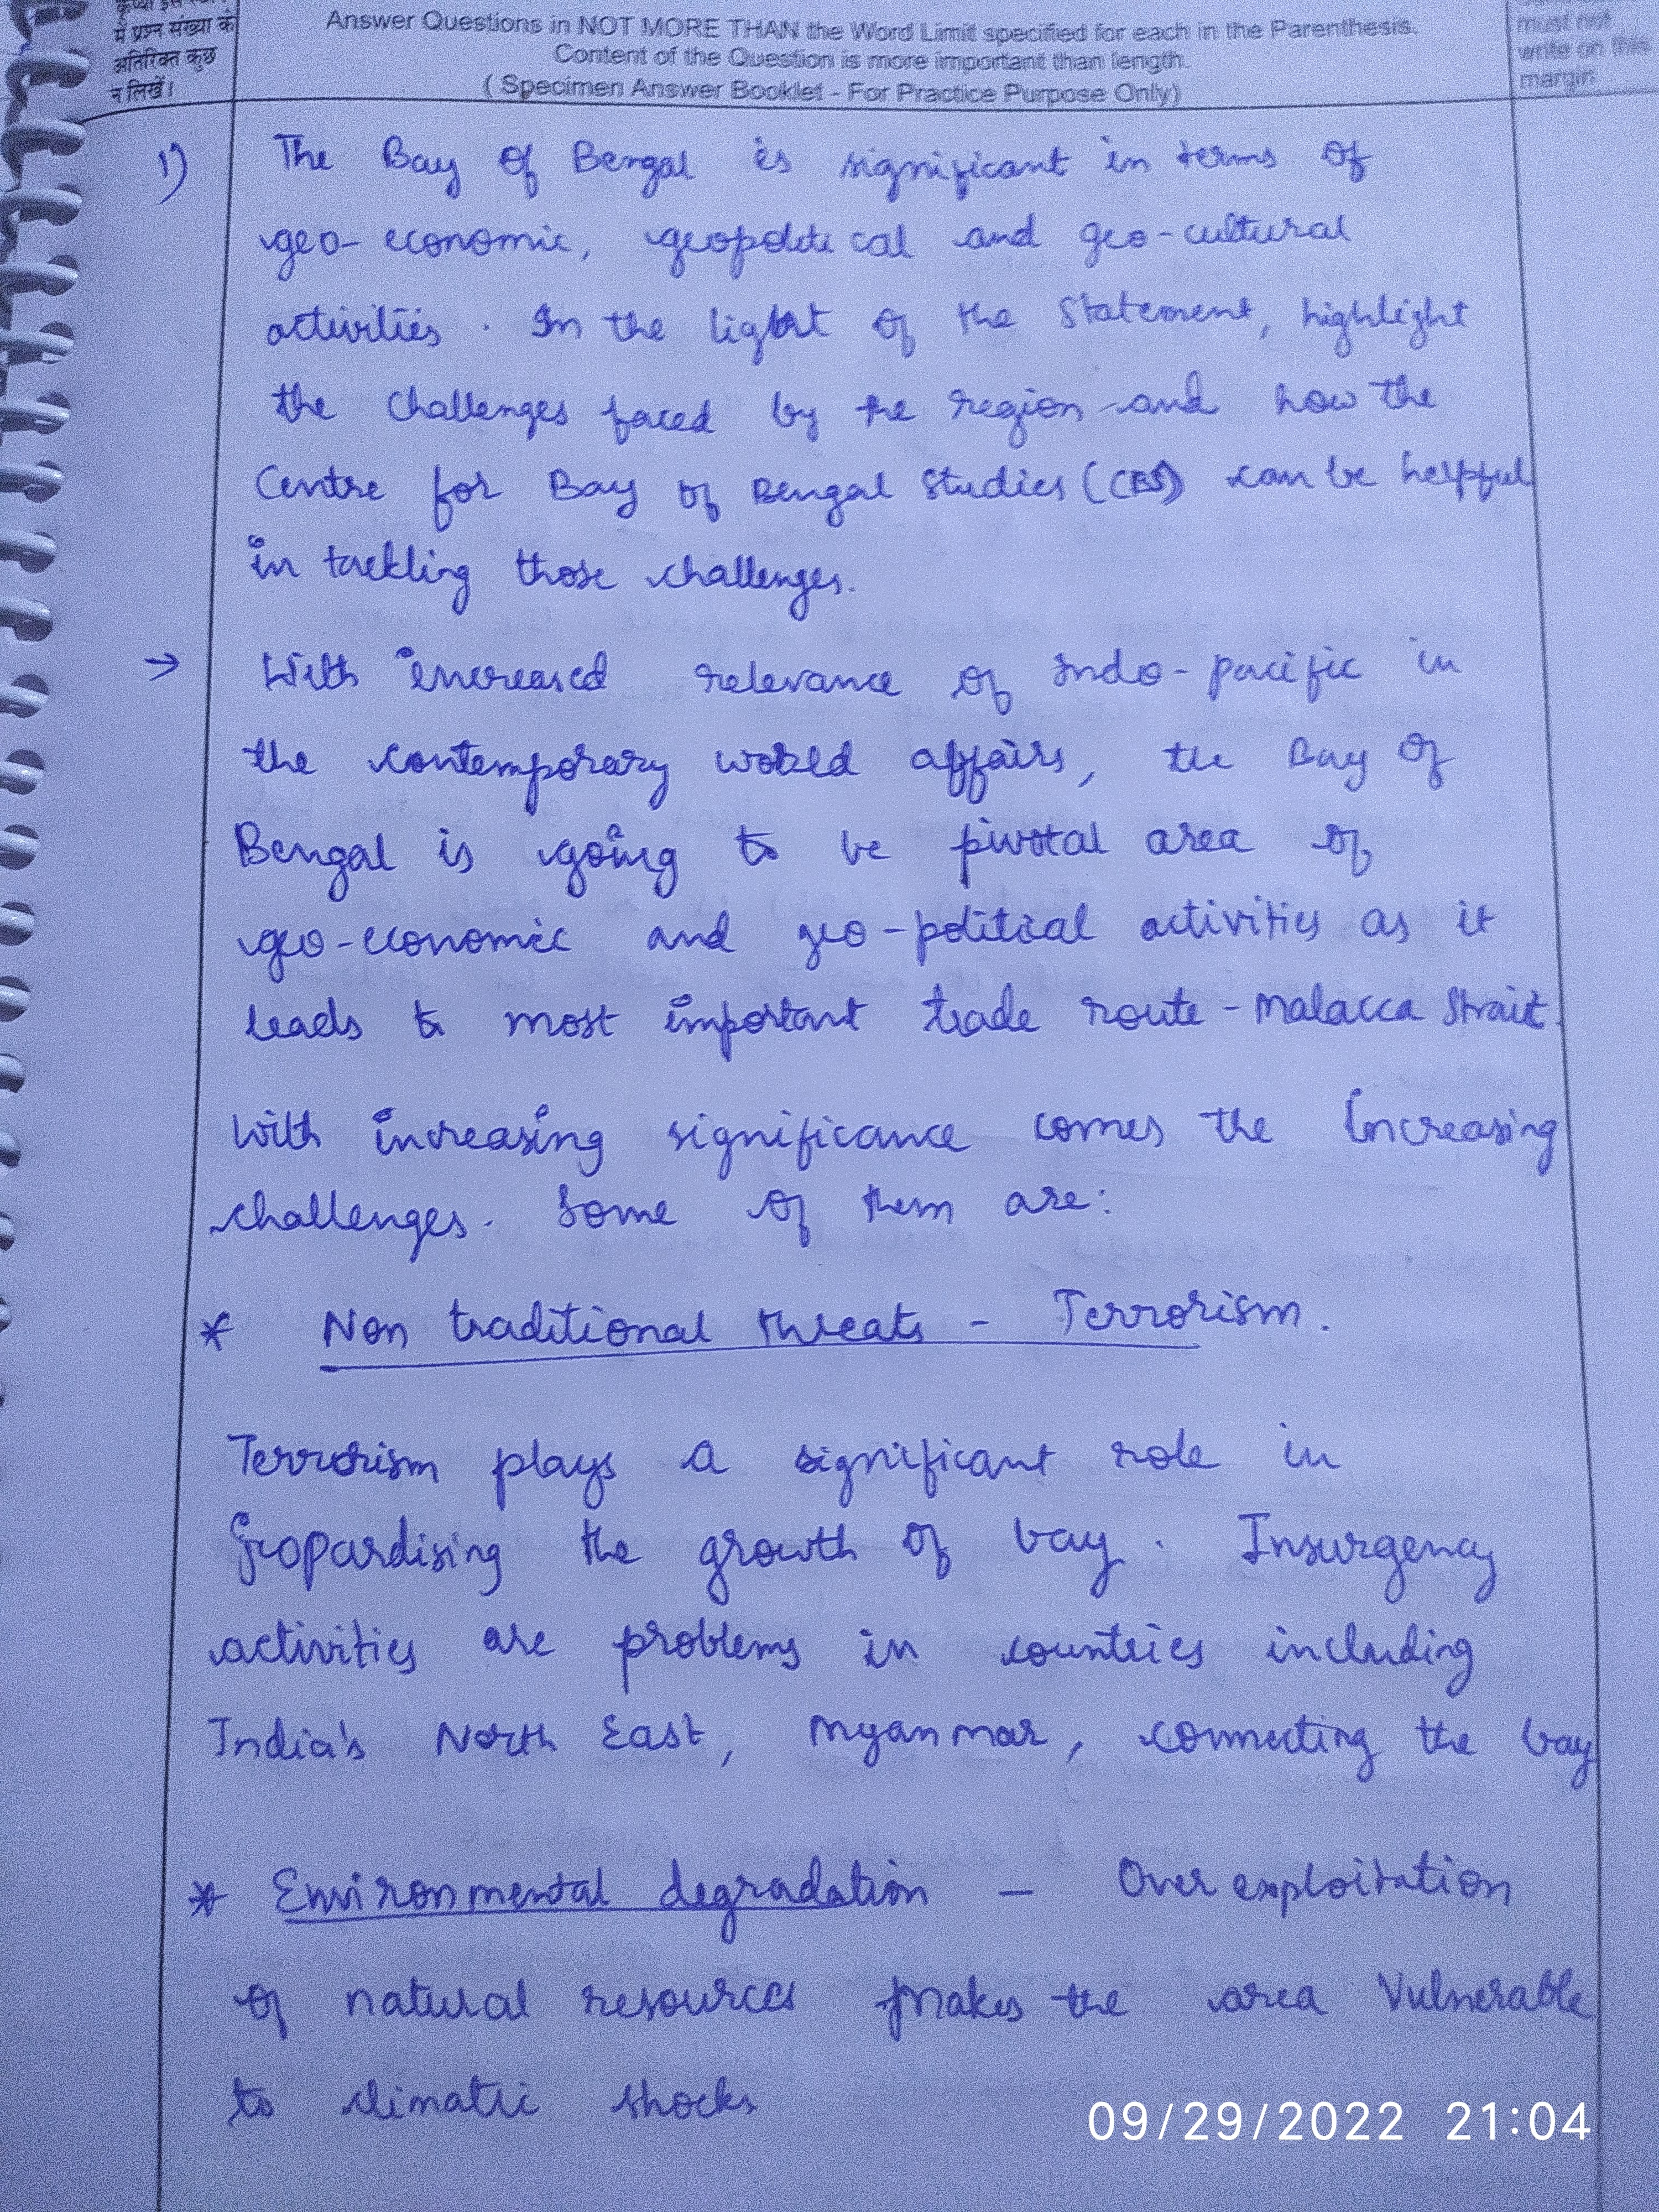 में प्रश्न संख्या के
अतिरिक्त कुछ
न लिखें।
Answer Questions in NOT MORE THAN the Word Limit specified for each in the Parenthesis.
Content of the Question is more important than length.
( Specimen Answer Booklet - For Practice Purpose Only)
must not
write on this
margin
1) The Bay of Bengal is significant in terms of
geo-economic, geopolitical and geo-cultural
activities. In the light of the Statement, highlight
the challenges faced by the region and how the
Centre for Bay of Bengal Studies (CBS) can be helpful
in tackling those challenges.
→ With increased relevance of Indo-pacific in
the contemporary world affairs, the Bay of
Bengal is going to be pivotal area of
geo-economic and geo-political activities as it
leads to most important trade route - Malacca Strait.
With increasing significance comes the increasing
challenges. Some of them are:
* Non traditional threats - Terrorism.
Terrorism plays a significant role in
jeopardising the growth of bay. Insurgency
activities are problems in countries including
India's North East, Myanmar, connecting the bay
* Environmental degradation - Over exploitation
of natural resources makes the area vulnerable
to climatic shocks
09/29/2022 21:04